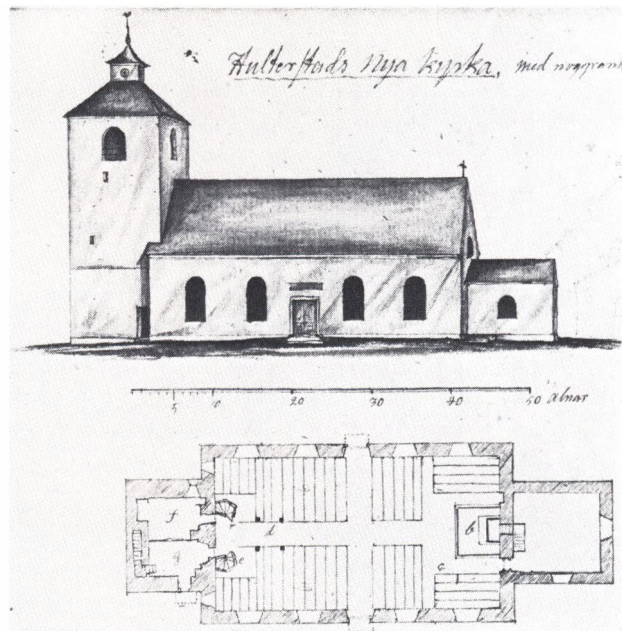 Hulterstads Nya kyrka, med noggrann
5 10 20 30 40 50 alnar
f
r
d
b
g
e
c